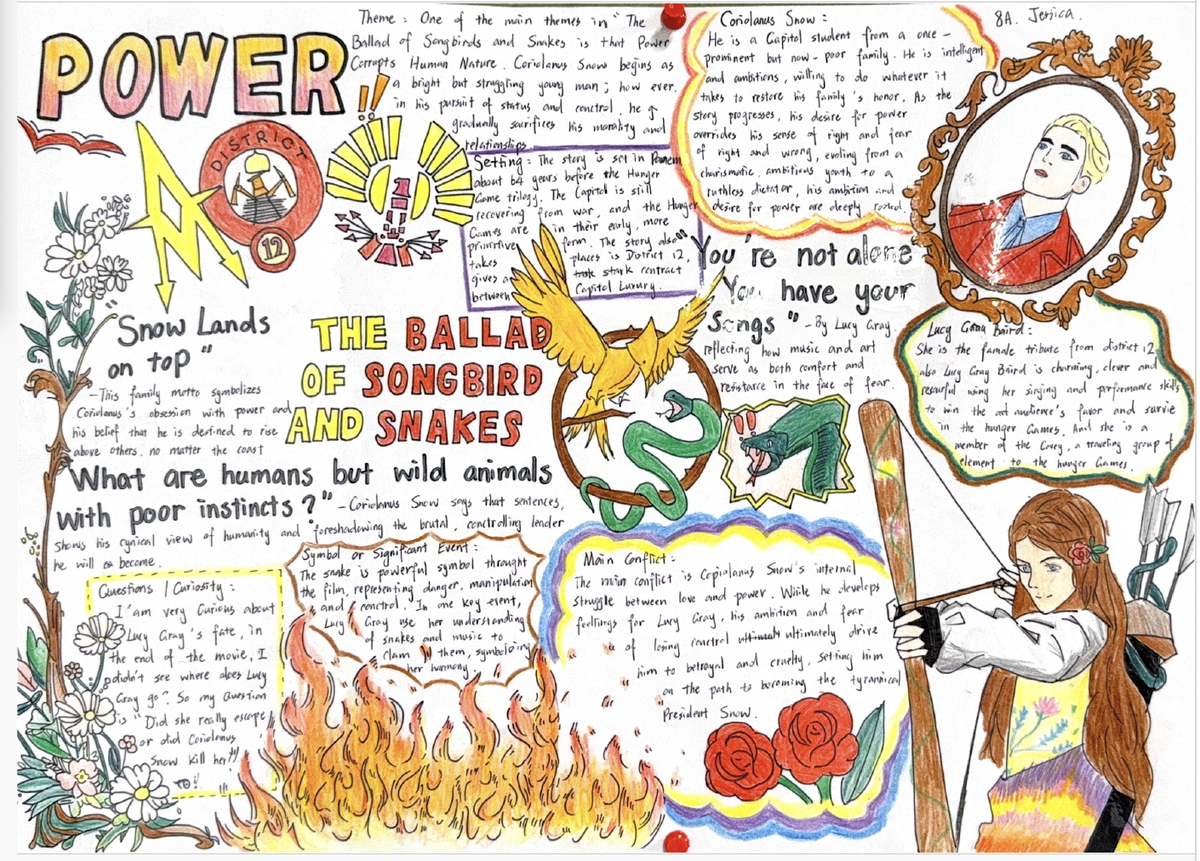 POWER
Theme : One of the main themes in " The
Ballad of Songbirds and Snakes is that Power
Corrupts Human Nature . Coriolanus Snow begins as
a bright but struggling young man ; how ever,
in his pursuit of status and conctrol, he
gradually sacrifices his morality and
relationships.
!!
DISTRICT
12
1
Setting : The story is set in Panem
about 64 years before the Hunger
Game trilogy. The Capital is still
recovering from war, and the Hunger
Games are in their early, more
primitive form. The story also
takes places is District 12,
gives a stark contract
between Capital Luxury.
Coriolanus Snow :
He is a Capitol student from a once -
prominent but now - poor family. He is intelligent
and ambitions, willing to do whatever it
takes to restore his family 's honor. As the
story progresses, his desire for power
overrides his sense of right and fear
of right and wrong, evoling from a
charismatic, ambitious youth to a
ruthless dictator, his ambition and
desire for power are deeply rooted.
8A. Jessica.
"You 're not alone
You have your
Songs " - By Lucy Gray.
reflecting how music and art
serve as both comfort and
resistance in the face of fear.
"Snow Lands
on top "
-This family motto symbolizes
Coriolanus's obsession with power and
his belief that he is destined to rise
above others. no matter the coast
THE BALLAD
OF SONGBIRD
AND SNAKES
!!
Lucy Gray Baird :
She is the famale tribute from district 12
also Lucy Gray Baird is charming, clever and
resourful using her singing and performance skills
to win the audience's favor and survie
in the hunger Games. And she is a
member of the Covey, a traveling group of
element to the hunger Games.
"What are humans but wild animals
with poor instincts ? " -Coriolanus Snow says that sentences,
shows his cynical view of humanity and foreshadowing the brutal, conctrolling leader
he will become.
Questions / Curiosity :
I 'am very Curious about
Lucy Gray 's fate, in
the end of the movie, I
didn't see where does Lucy
Gray go? So my Question
is "Did she really escape
or did Coriolanus
Snow kill her"
Symbol or Significant Event :
The snake is powerful symbol throught
the film, representing danger, manipulation
and conctrol. In one key event,
Lucy Gray use her understanding
of snakes and music to
clam them, symbolizing
her harmony.
Main Conflict :
The main conflict is Copiolanus Snow's internal
struggle between love and power. While he develops
feeltings for Lucy Gray, his ambition and fear
of losing conctrol ultimately drive
him to betrayal and cruelty, setting him
on the path to becoming the tyrannical
President Snow.